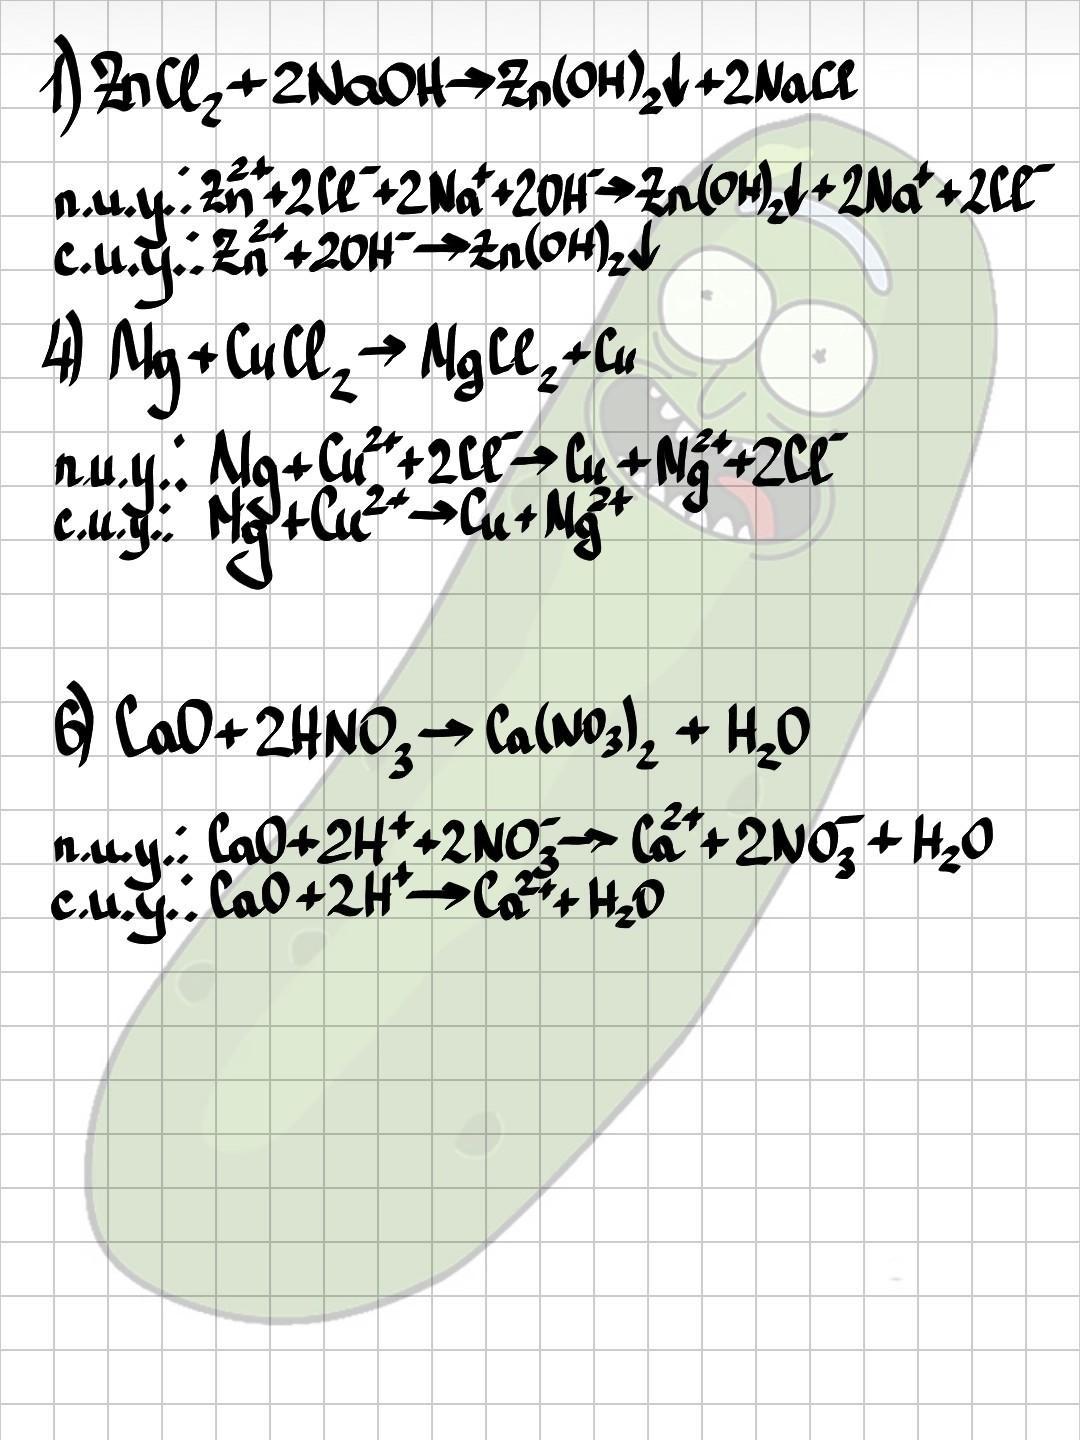 1) ZnCl₂ + 2NaOH → Zn(OH)₂↓ + 2NaCl
п.и.у.: Zn²⁺ + 2Cl⁻ + 2Na⁺ + 2OH⁻ → Zn(OH)₂↓ + 2Na⁺ + 2Cl⁻
с.и.у.: Zn²⁺ + 2OH⁻ → Zn(OH)₂↓
4) Mg + CuCl₂ → MgCl₂ + Cu
п.и.у.: Mg + Cu²⁺ + 2Cl⁻ → Cu + Mg²⁺ + 2Cl⁻
с.и.у.: Mg + Cu²⁺ → Cu + Mg²⁺
6) CaO + 2HNO₃ → Ca(NO₃)₂ + H₂O
п.и.у.: CaO + 2H⁺ + 2NO₃⁻ → Ca²⁺ + 2NO₃⁻ + H₂O
с.и.у.: CaO + 2H⁺ → Ca²⁺ + H₂O